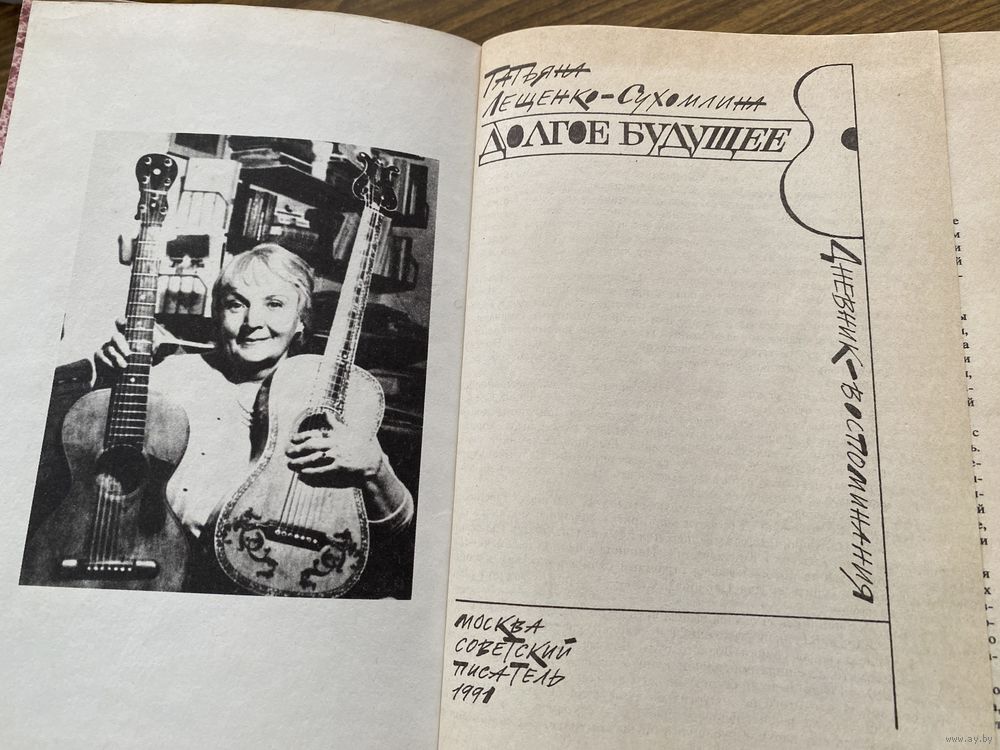 Татьяна
Лещенко-Сухомлина
ДОЛГОЕ БУДУЩЕЕ
Дневник-воспоминания
Москва
Советский
писатель
1991
www.ay.by